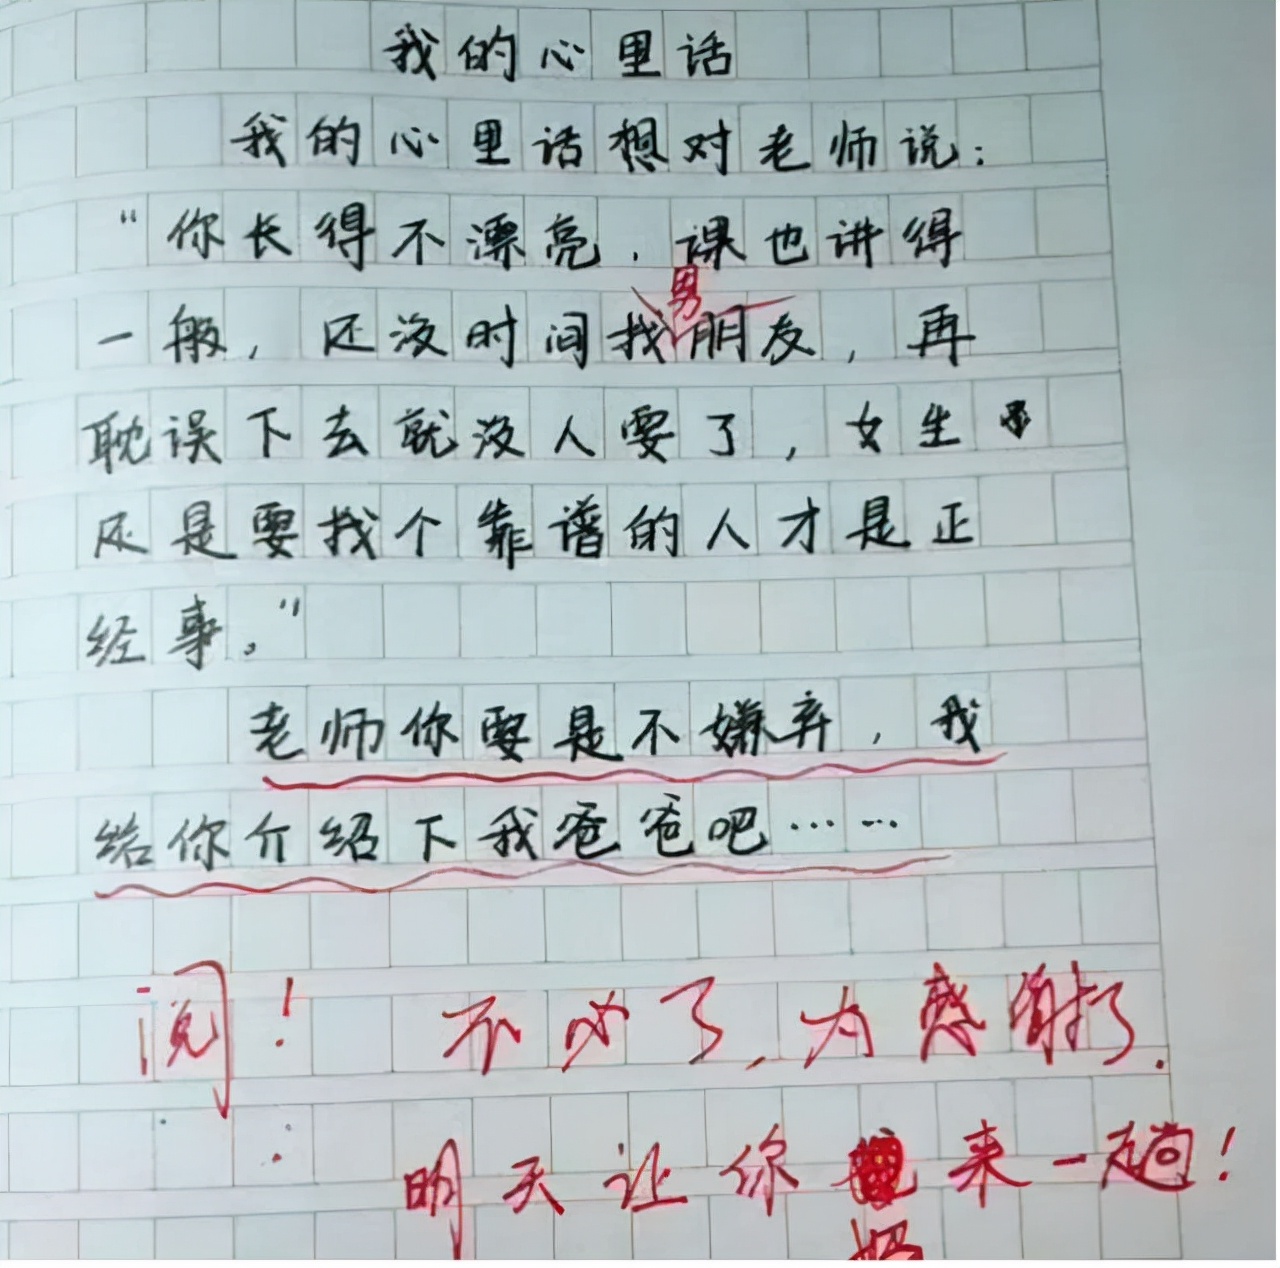 我的心里话
我的心里话想对老师说:
“你长得不漂亮,课也讲得
男
一般,还没时间找朋友,再
耽误下去就没人要了,女生
还是要找个靠谱的人才是正
经事。”
老师你要是不嫌弃,我
给你介绍下我爸爸吧……
阅! 不必了,为感谢了.
明天让你来一趟!
妈